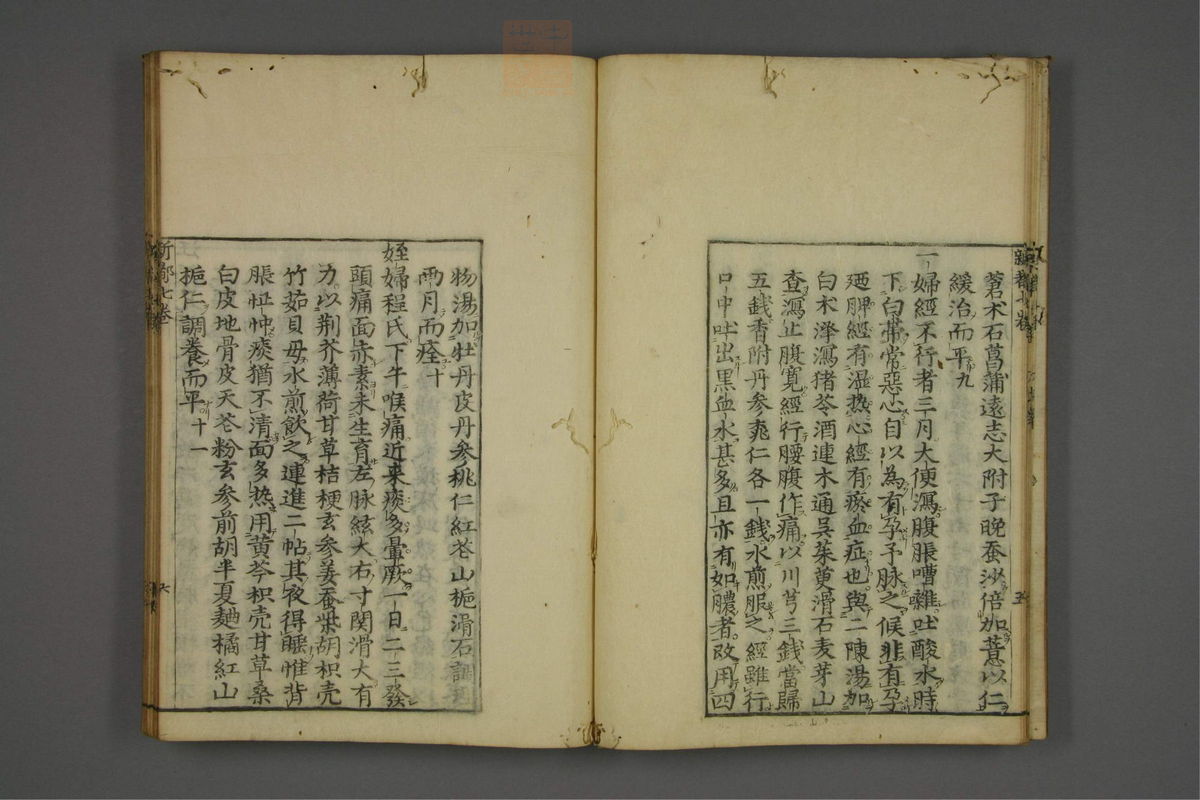 蒼朮石菖蒲遠志大附子晚蚕沙倍加薏以仁
緩治而平九
一婦經不行者三月大便瀉腹脹嘈雜吐酸水時
下白帶常惡心自以為有孕予脉之候非有孕
廼脾經有湿热心經有瘀血症也與二陳湯加
白朮澤瀉猪苓酒連木通吳茱萸滑石麦芽山
查瀉止腹寬經行腰腹作痛以川芎三錢當歸
五錢香附丹参桃仁各一錢水煎服之經雖行
口中吐出黒血水甚多且亦有如膿者改用四
物湯加牡丹皮丹参桃仁紅花山梔滑石調理
兩月而痊十
姪婦程氏下午喉痛近来痰多暈厥一日二三發
頭痛面赤素未生育左脉絃大右寸関滑大有
力以荆芥薄荷甘草桔梗玄参姜蚕柴胡枳壳
竹茹貝母水煎飲之連進二帖其夜得睡惟背
脹怔忡痰猶不清面多热用黄芩枳壳甘草桑
白皮地骨皮天花粉玄参前胡半夏麯橘紅山
梔仁調養而平十一